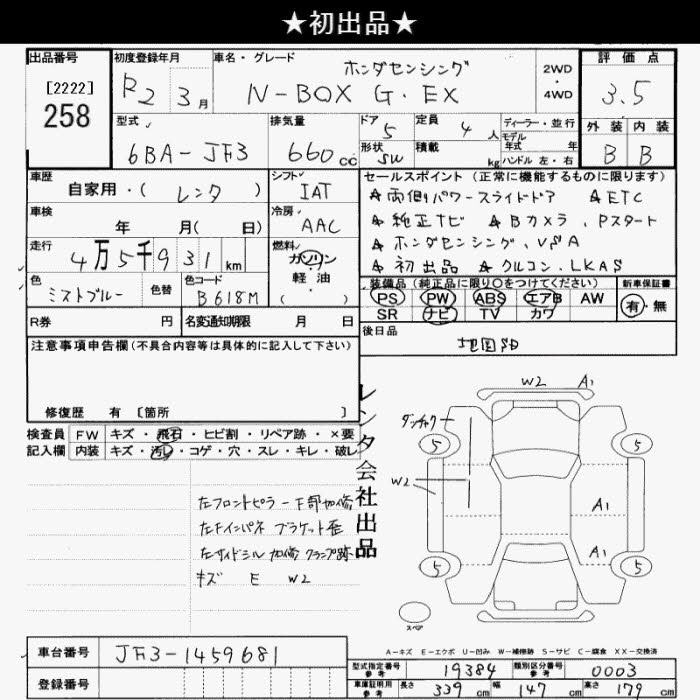 ★初出品★
出品番号
[2222]
258
初度登録年月
R2 3月
車名・グレード
ホンダセンシング
N-BOX G・EX
2WD
・
4WD
評価点
3.5
外装 内装
B B
型式
6BA-JF3
排気量
660cc
ドア 5
形状 SW
定員 4人
積載 kg
ディーラー・並行
モデル年式 年
ハンドル 左・右
車歴
自家用・( レンタ )
シフト
IAT
車検
年 月( 日)
冷房
AAC
走行
4万5千931km
燃料
ガソリン
軽油
・( )
色
ミストブルー
色替
色コード
B618M
R券 円
名変通知期限 月 日
セールスポイント (正常に機能するものに限ります)
☆両側パワースライドドア ☆ETC
☆純正ナビ ☆Bカメラ、Pスタート
☆ホンダセンシング、VSA
☆初出品 ☆クルコン、LKAS
装備品(純正品に限り○をつけてください)
PS PW ABS エアB AW
SR ナビ TV カワ
新車保証書
有・無
後日品
地図SD
注意事項申告欄(不具合内容等は具体的に記入して下さい)
修復歴 有 [箇所 ]
検査員記入欄
FW キズ・飛石・ヒビ割・リペア跡・×要
内装 キズ・汚れ・コゲ・穴・スレ・キレ・破レ
レンタ会社出品
左フロントピラー下部加修
左Fインパネ ブラケット歪
左サイドシル加修 クランプ跡
キズ E W2
W2 A1
5 5
W2
A1
A1
5 5
スペア
A-キズ E-エクボ U-凹み W-補修跡 S-サビ C-腐食 XX-交換済
車台番号
JF3-1459681
登録番号
型式指定番号 参考 19384
類別区分番号 参考 0003
車庫証明用 参考 長さ 339cm 幅 147cm 高さ 179cm